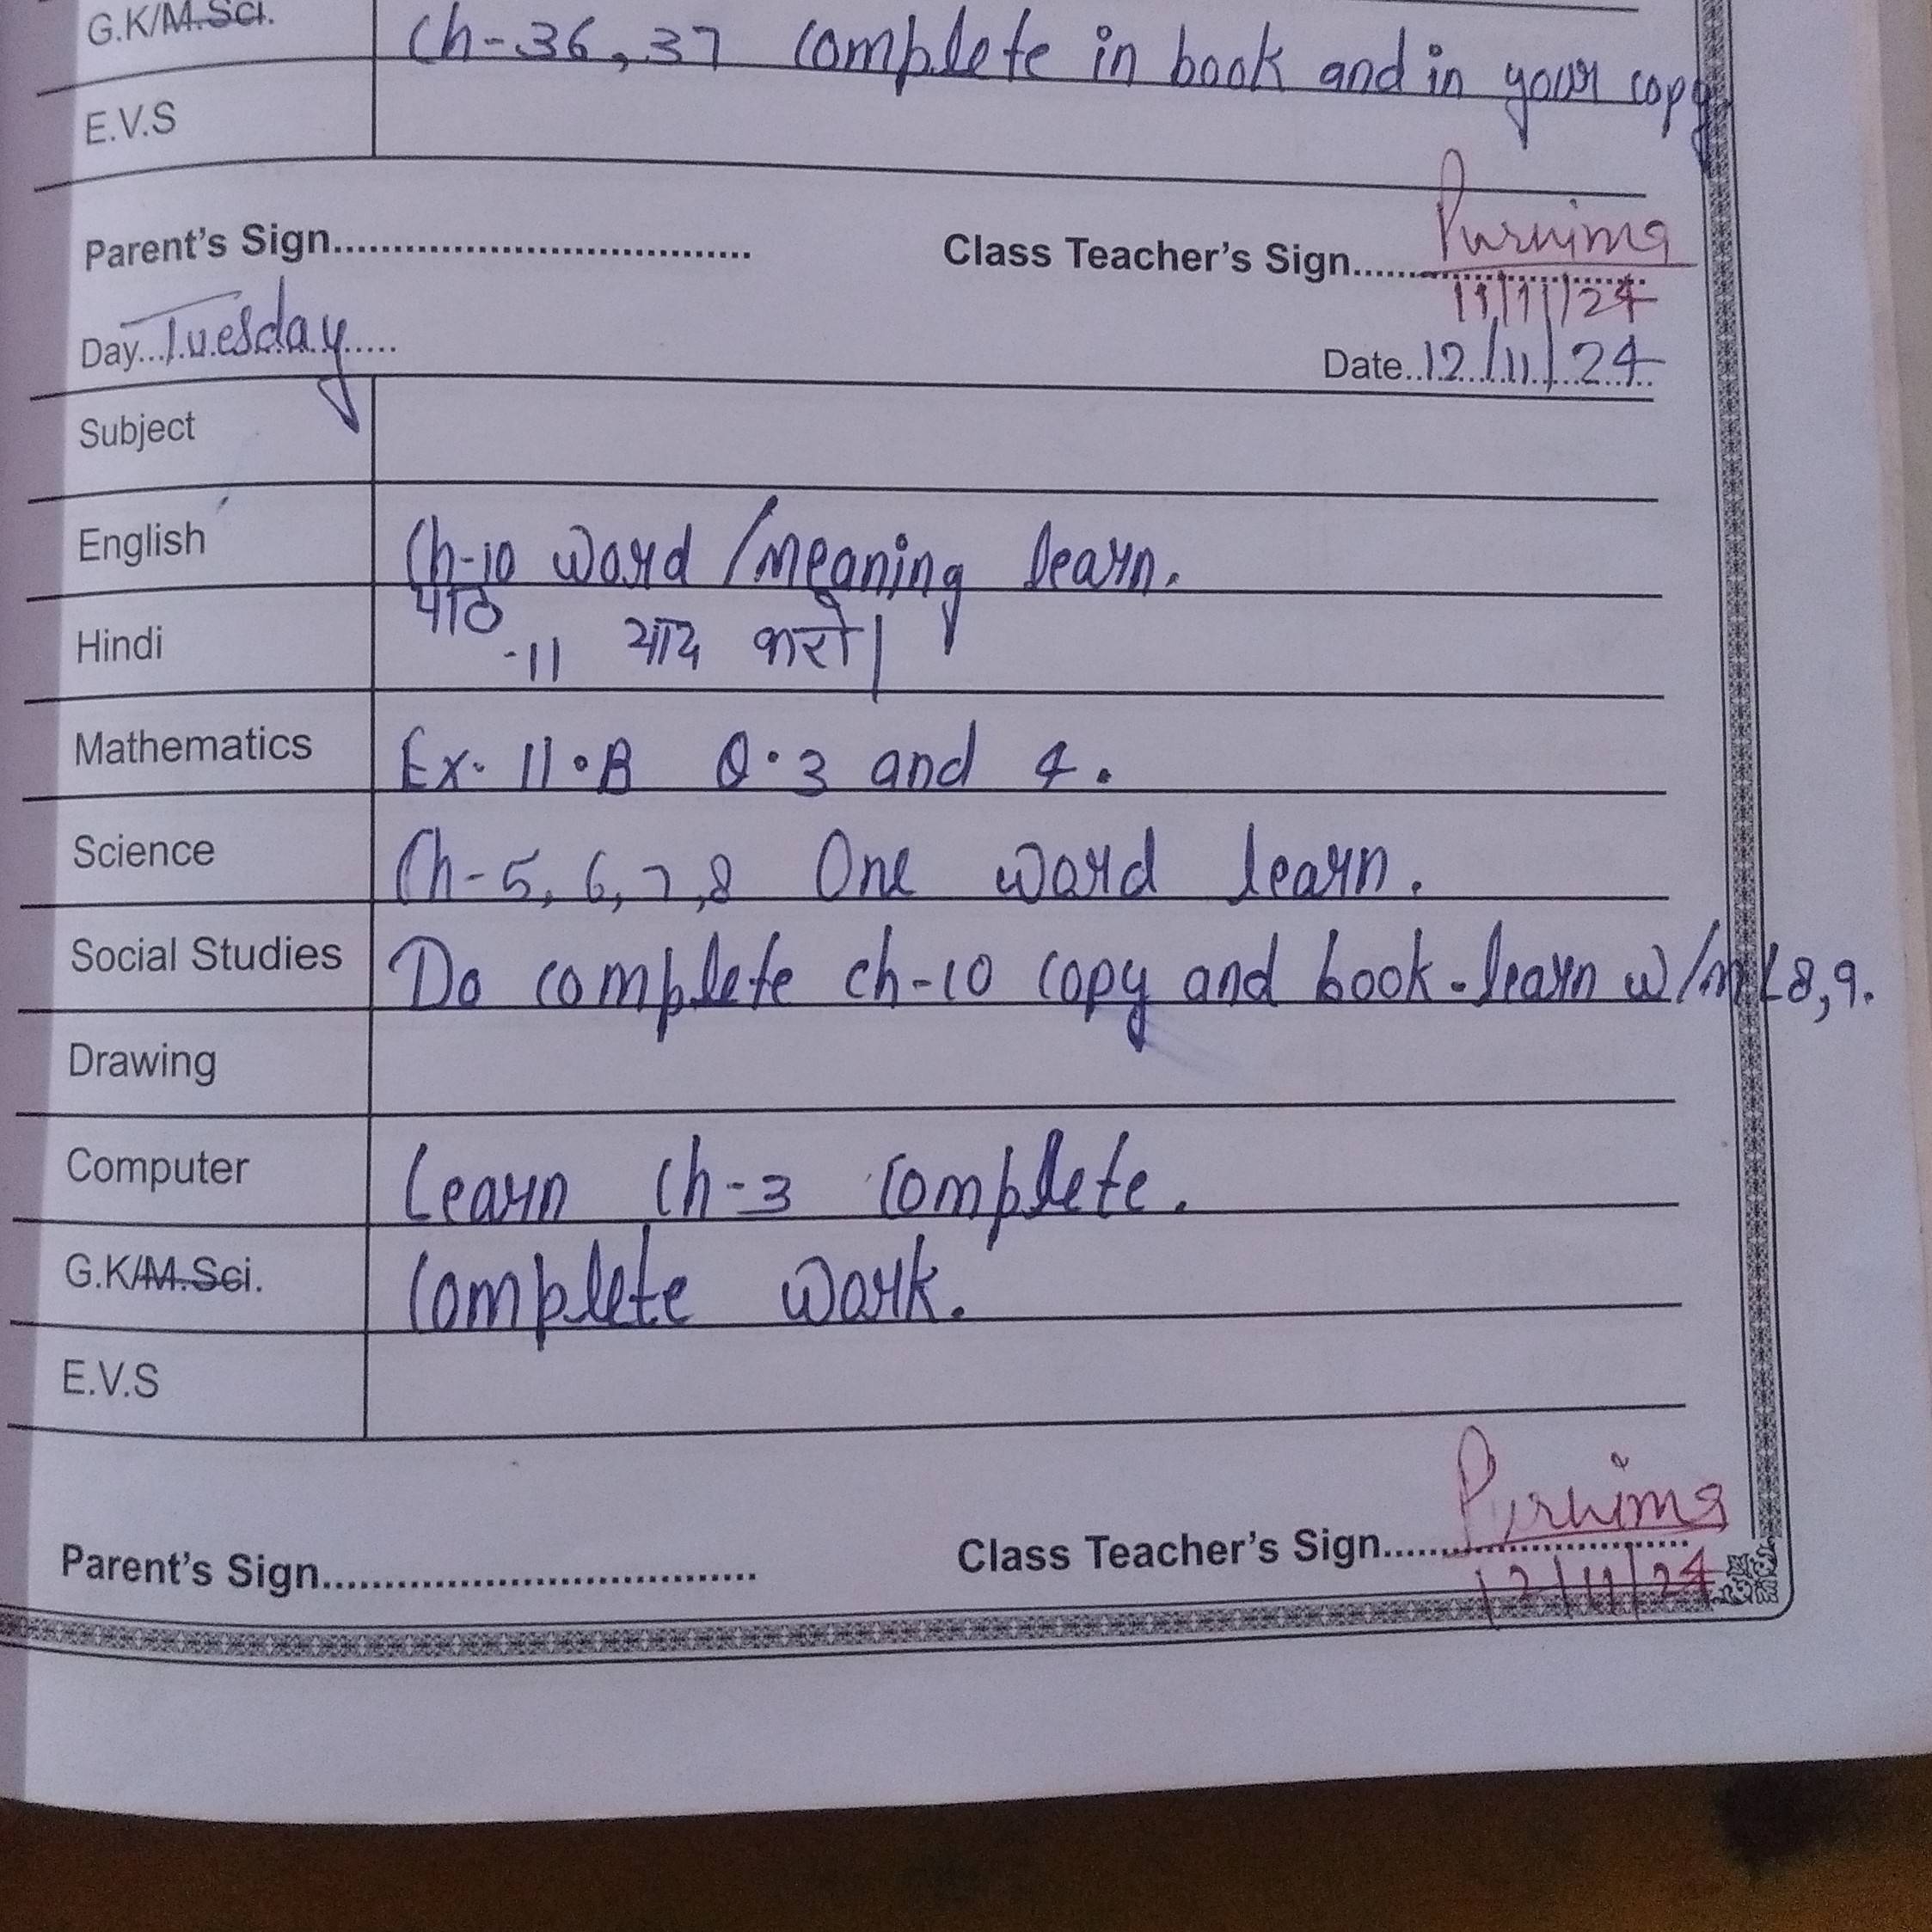 G.K/M.Sci. Ch-36, 37 complete in book and in your copy
E.V.S
Parent's Sign................................... Class Teacher's Sign...... Purnima
11/11/24
Day...Tuesday..... Date..12/11/24
Subject
English Ch-10 word /meaning learn.
Hindi पाठ -11 याद करो|
Mathematics Ex. 11.B Q.3 and 4.
Science Ch-5, 6, 7, 8 One word learn.
Social Studies Do complete ch-10 copy and book. learn w/m 8, 9.
Drawing
Computer Learn Ch-3 complete.
G.K/M.Sci. Complete work.
E.V.S
Parent's Sign................................... Class Teacher's Sign...... Purnima
12/11/24